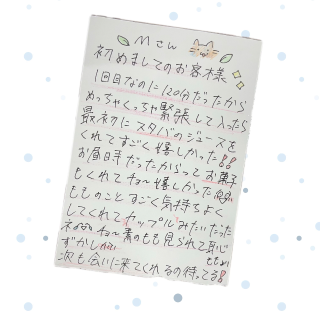 Mさん
初めましてのお客様
1回目なのに120分だったから
めっちゃくっちゃ緊張して入ったら
最初にスタバのジュースを
くれてすごく嬉しかった!!
お昼時だったからってお菓子
もくれてね〜嬉しかった
もものことすごく気持ちよく
してくれてカップルみたいだった
ね〜素のもも見られて恥
ずかしい
次も会いに来てくれるの待ってる!